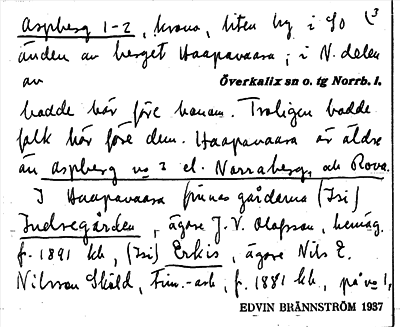 Aspberg 1-2, krono, liten by i SO 3
änden av berget Haapavaara; i N. delen
av
Överkalix sn o. tg Norrb. l.
hadde här före honom. Troligen hadde
folk här före dem. Haapavaara är äldre
än Aspberg no 3 el. Norraberg, och Rova.
I Haapavaara finnes gårdarna (Isi)
Indregården, ägare J. V. Olofsson, hemäg.
f. 1891 kh, (Isi) Erkis, ägare Nils E.
Nilsson Sköld, f. 1881 kh., på no 1,
EDVIN BRÄNNSTRÖM 1937